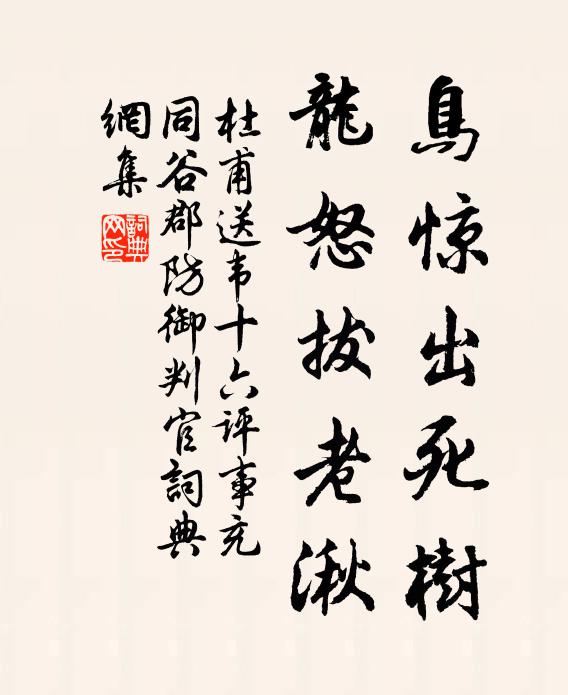 鳥惊出死樹
龍怒拔老湫
杜甫送韦十六評事充
同谷郡防御判官詞典
網集
詞典
网印